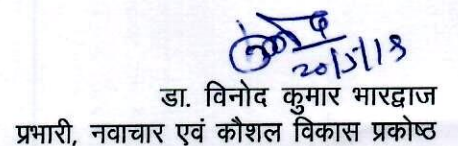 20/5/18
डा. विनोद कुमार भारद्वाज
प्रभारी, नवाचार एवं कौशल विकास प्रकोष्ठ